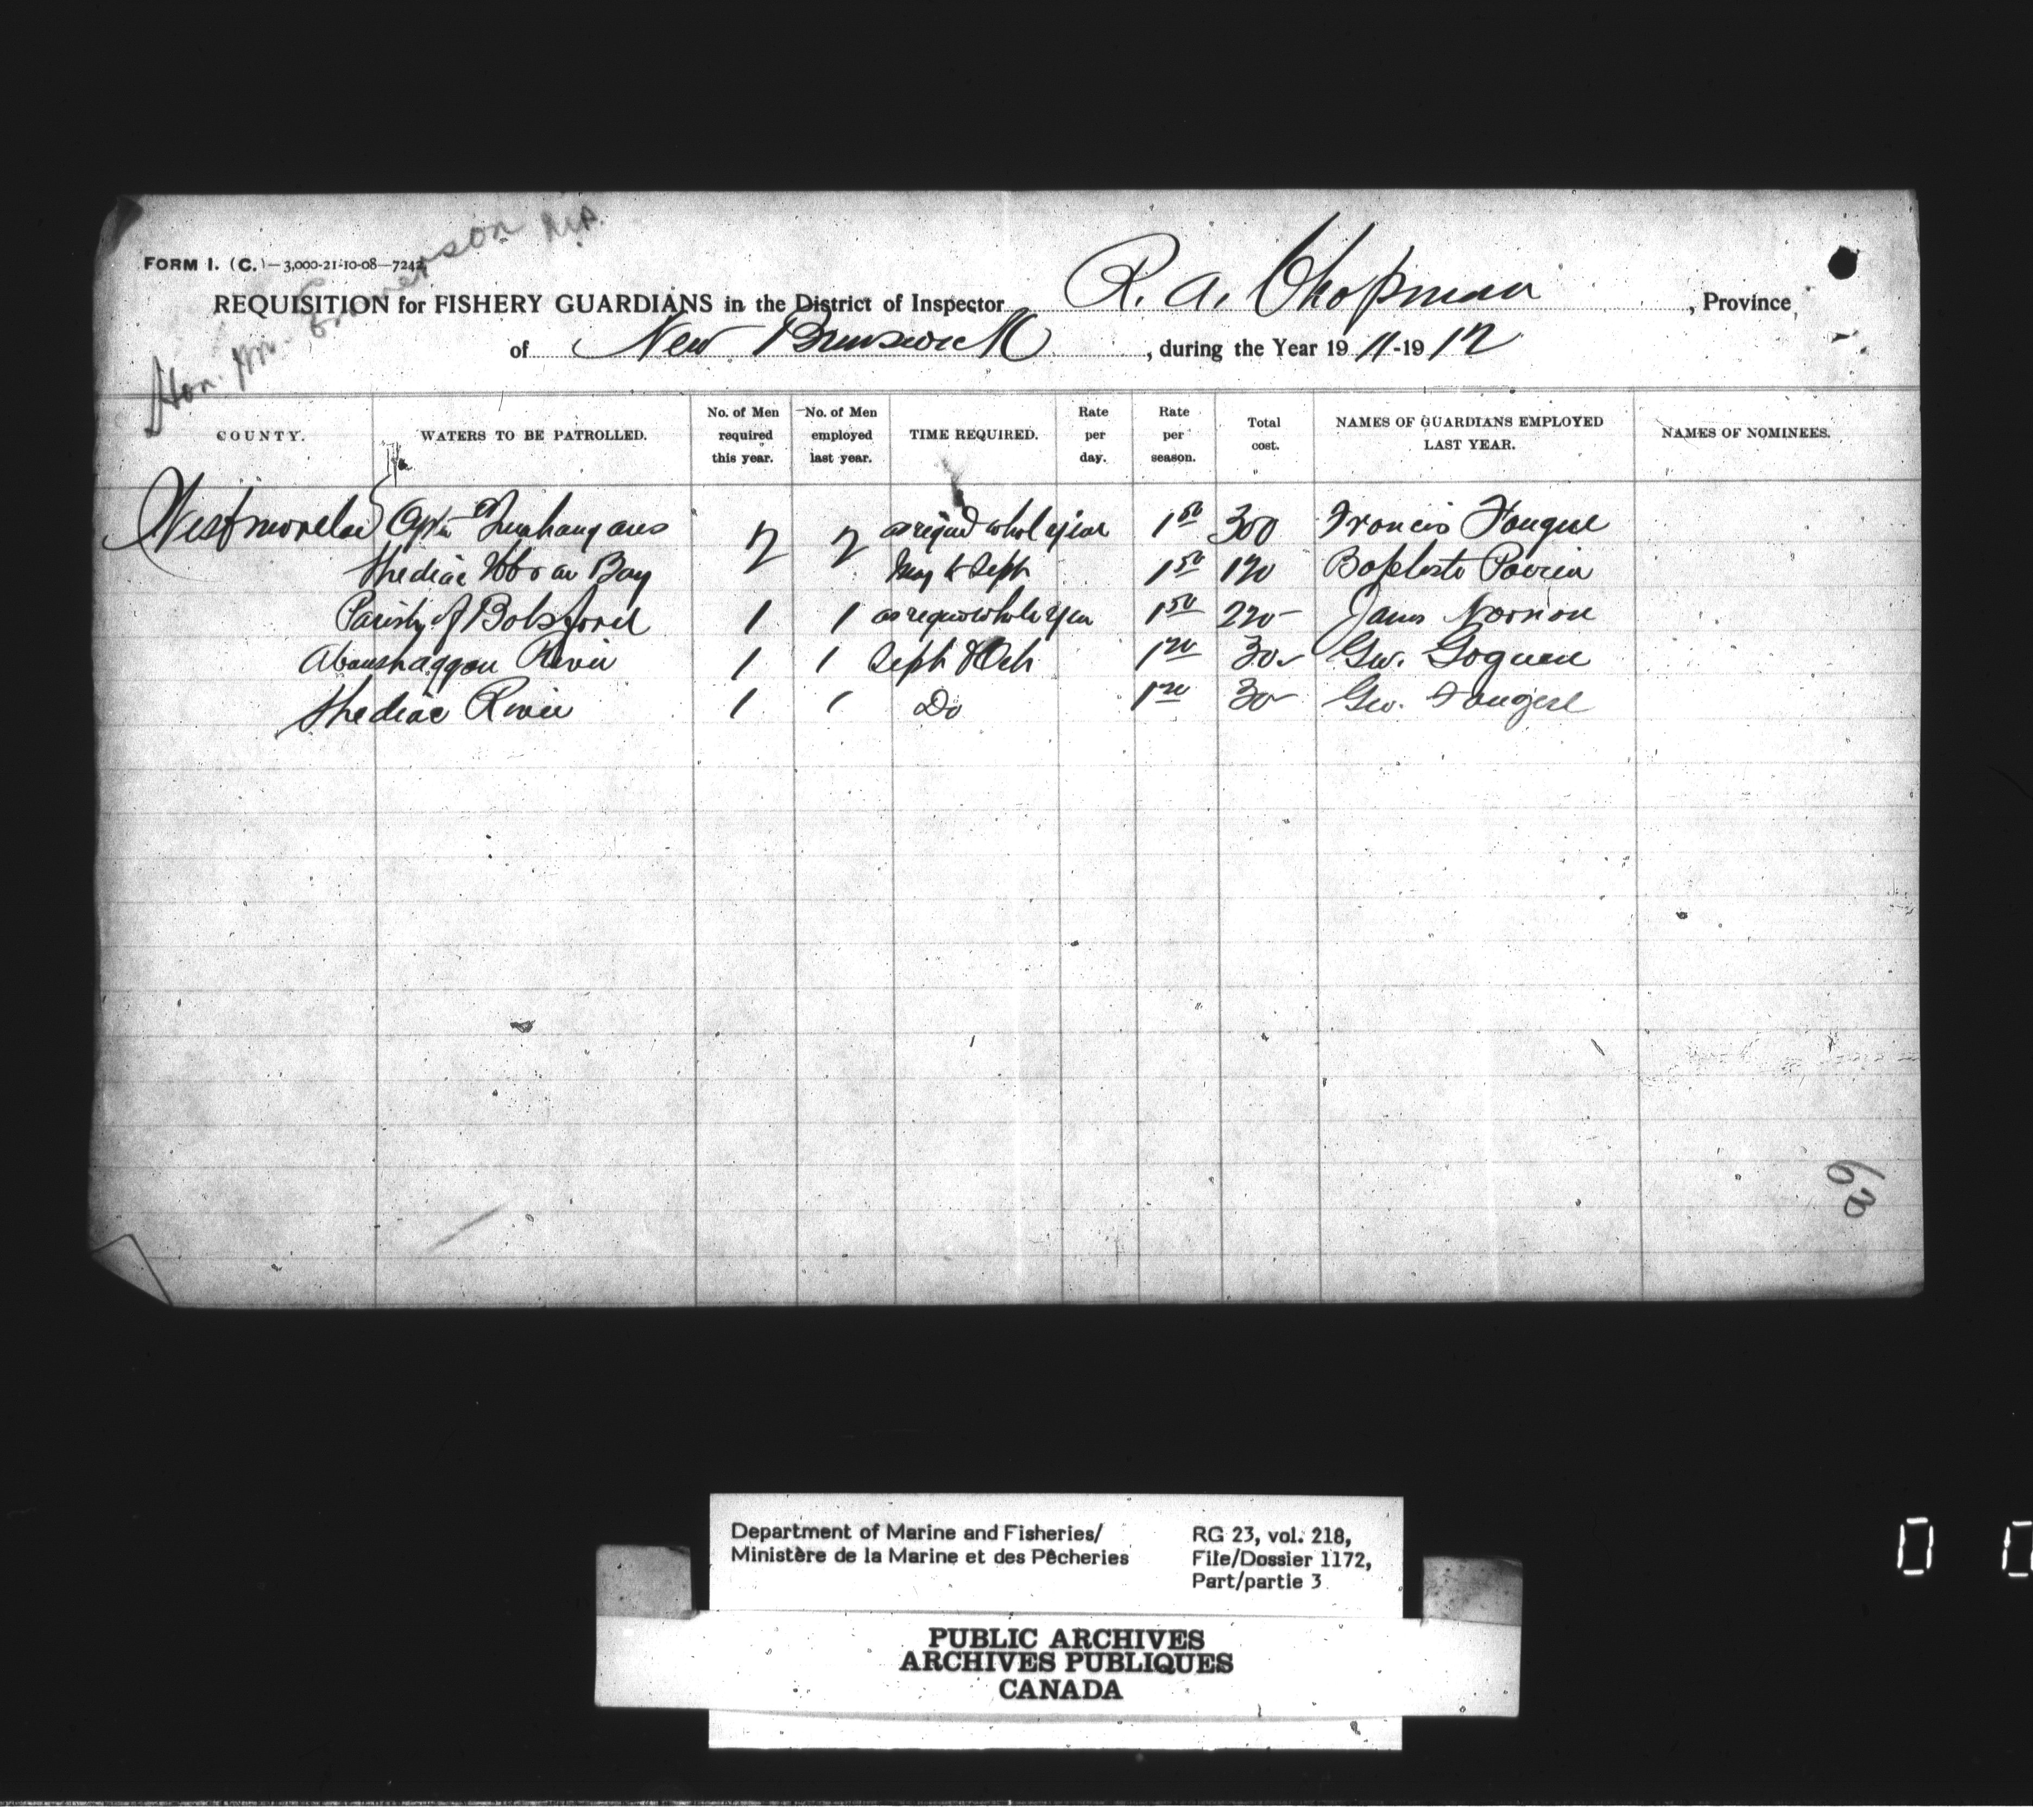 Hon. Mr. Emmerson M.P.
FORM 1. (C.)—3,000-21-10-08—7242
REQUISITION for FISHERY GUARDIANS in the District of Inspector R. A. Chapman, Province
of New Brunswick, during the Year 1911-1912
COUNTY. WATERS TO BE PATROLLED. No. of Men required this year. No. of Men employed last year. TIME REQUIRED. Rate per day. Rate per season. Total cost. NAMES OF GUARDIANS EMPLOYED LAST YEAR. NAMES OF NOMINEES.
Westmorelan 2 2 as requrd whole year 1 50 300 Francis Fougere
Shediac Bay May to Sept 1 50 120 Baptiste Poirier
Parish of Botsford 1 1 as requr whole year 1 50 220 James
Aboushaggan River 1 1 Sept & Oct 1 30 Geo. Goguen
Shediac River 1 1 Do 1 30 Geo. Fougere
63
Department of Marine and Fisheries/
Ministère de la Marine et des Pêcheries
RG 23, vol. 218,
File/Dossier 1172,
Part/partie 3
PUBLIC ARCHIVES
ARCHIVES PUBLIQUES
CANADA